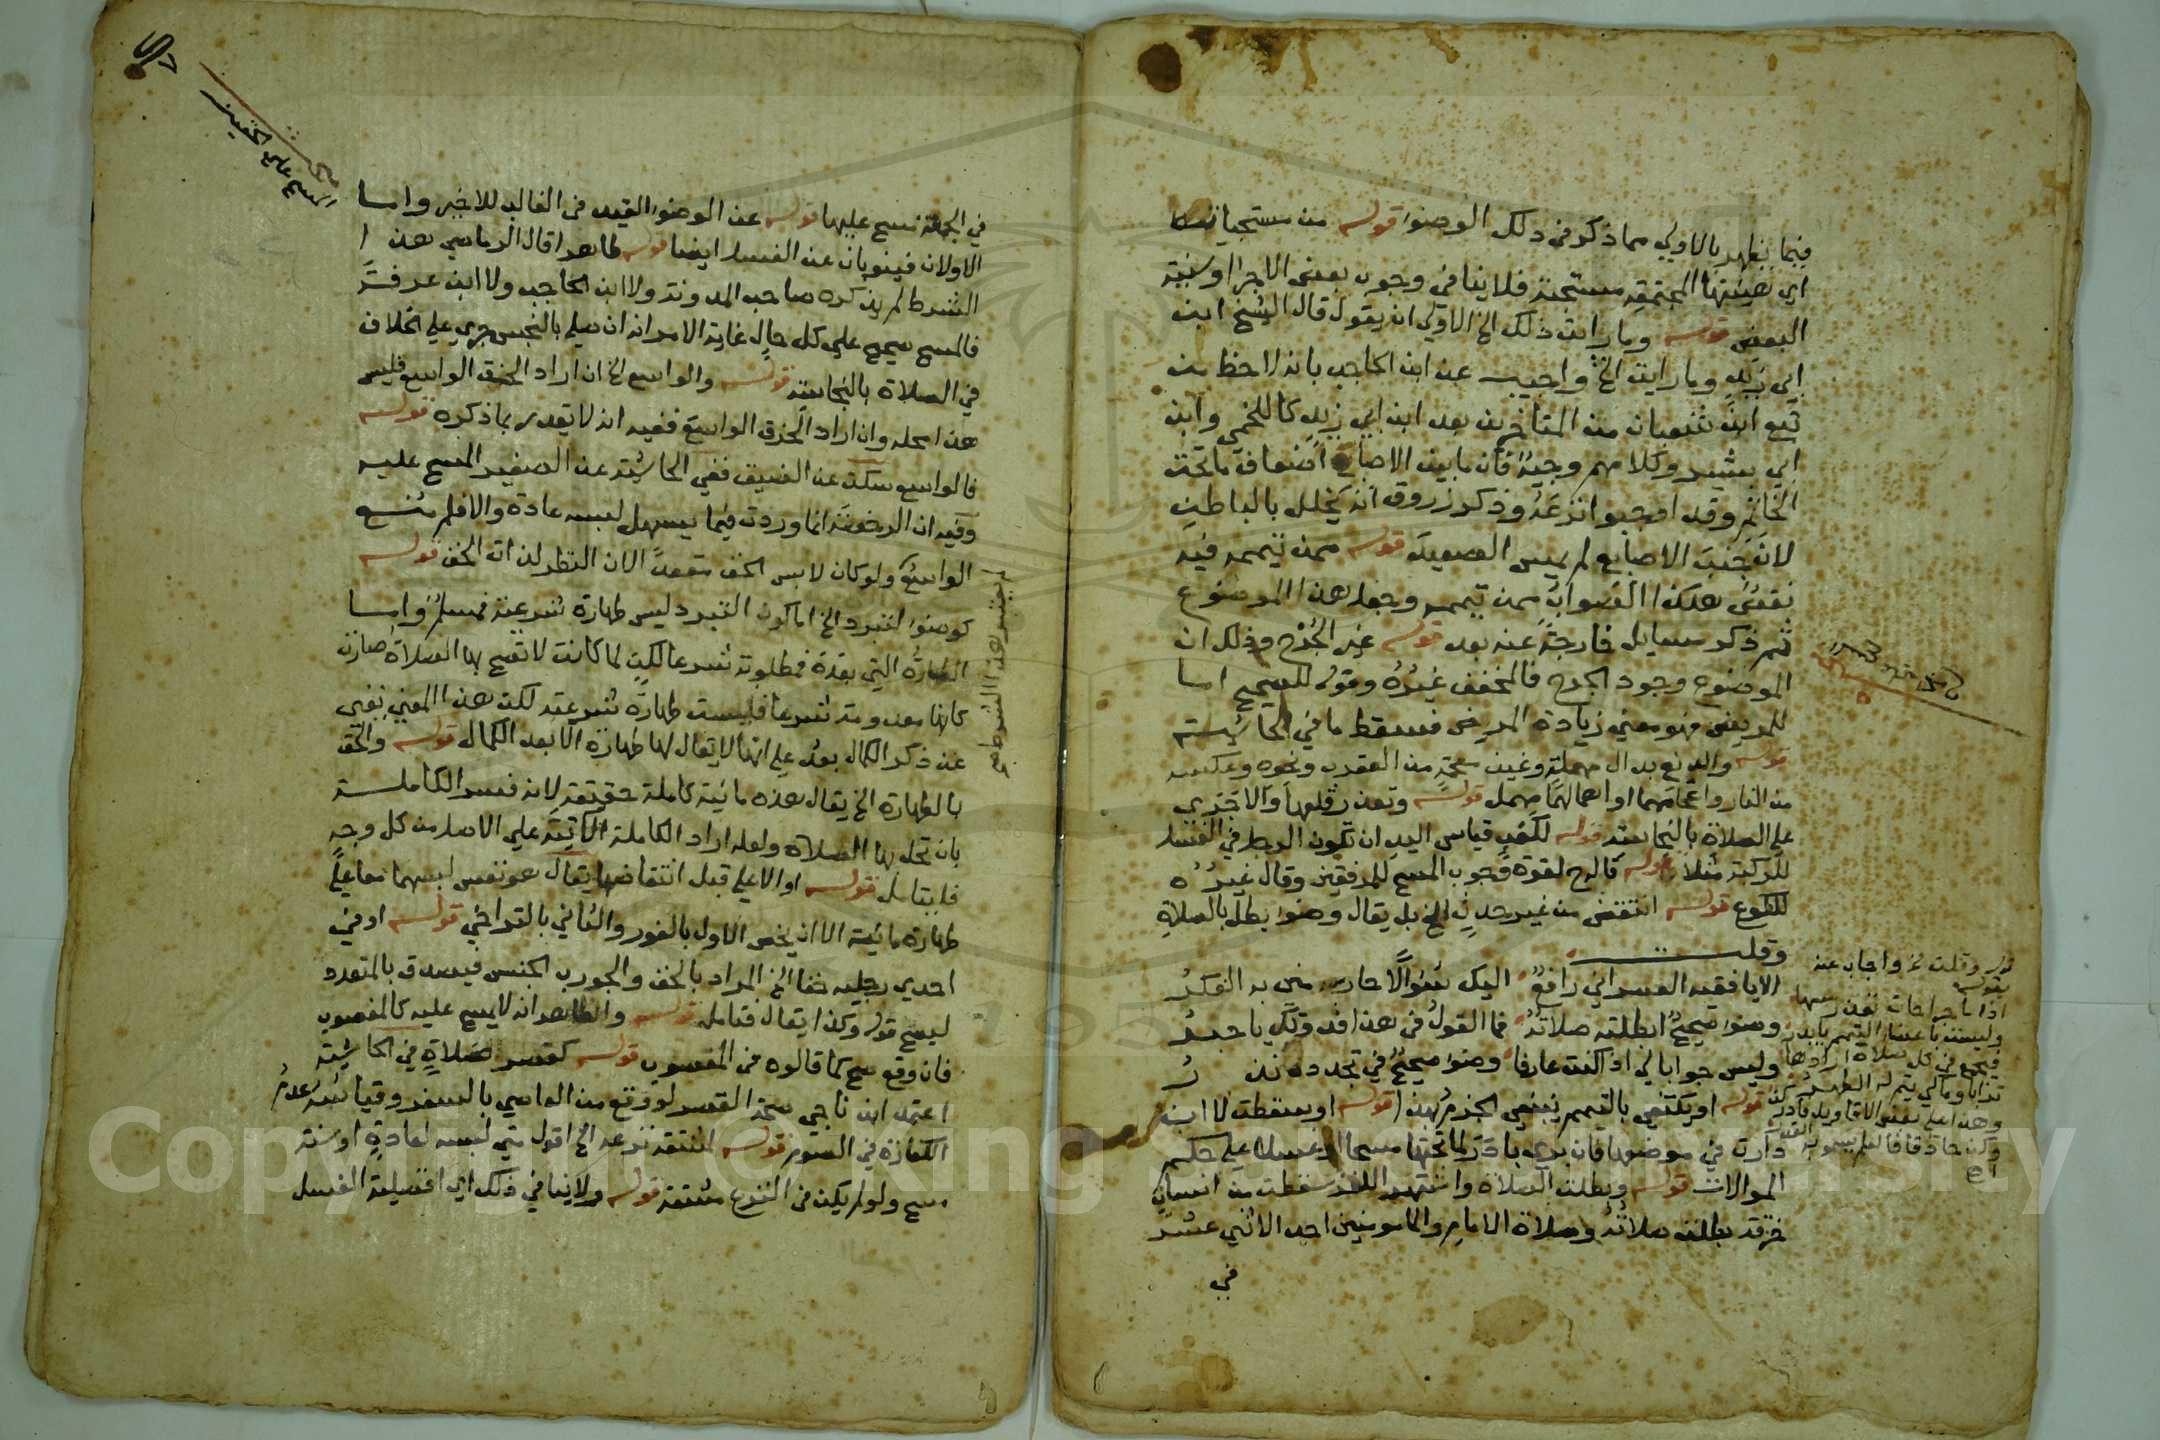 فيما يظهر بالاولي مما ذكر في ذلك الوضوء قوله من مستحباتها
اي هيئتها المجتمعة مستحبة فلا ينافي وجوب بعض الاجزا وسنية
البعض قوله وما رايت ذلك الخ الاولي ان يقول قال الشيخ ابن
ابي زيد وما رايت الخ واجيب عن ابن الحاجب بانه لاحظ من
تبع ابن شعبان من المتاخرين بعد ابن ابي زيد كاللخمي وابن
ابي بشير وكلامهم وجيه فان ما بين الاصابع اضعاف ما تحت
الخاتم وقد اوجبوا نزعه وذكر زروق انه يخلل بالباطن
لان جنب الاصابع لم يمس الصعيد قوله ممن تيمم فيه
نقص هكذا الصواب ممن تيمم وجعل هذا الموضوع
ثم ذكر مسايل خارجة عنه بعد قوله غير الجرح وذلك ان
الموضوع وجود الجرح فالمخفف غيره وقوله للصحيح اما
للمريض فهو معني زيادة المرض فسقط ما في الحاشية
قوله والدغ بدال مهملة وغين معجمة من العقرب ونحوه وعكسه
من النار واعجامهما او اهمالهما مهمل قوله وتعذر قلعها والا جري
علي الصلاة بالنجاسة قوله لكعب قياس اليد ان تكون الرجل في الغسل
للركبة مثلا قوله قال ح لقوة وجوب المسح للمرفقين وقال غيره
للكوع قوله انتقض من غير حدث الخ بل يقال وضوء بطل بالصلاة
وقلت
الا يا فقيه العصر اني رافع اليك سؤالا حار مني به الفكر
وضوء صحيح ابطلته صلاته فما القول في هذا فديتك يا حبر
وليس جوابا لي اذ اكنت عارفا وضوء صحيح في تجدده نذر
قوله او يكتفي بالتيمم ينبغي الجزم بهذا قوله او سقطت لا ان
دارت في موضعها فان بري بادر لما تحتها مسحا او غسلا علي حكم
الموالات قوله وبطلت الصلاة واشتهر اللغز سقطت من انسان
خرقة بطلت صلاته وصلاة الامام والمامومين احد الاثني عشر
في
قوله وقلت الخ واجاب عنه
بقوله
اذا ما جراحات تعذر مسها
في الجمعة نمسح عليها قوله عن الوضوء القيد في الغالب للاخير واما
الاولان فينوبان عن الغسل ايضا قوله طاهرا قال الرماصي هذا
الشرط لم يذكره صاحب المدونة ولا ابن الحاجب ولا ابن عرفة
فالمسح صحيح علي كل حال غاية الامر انه ان صلي بالنجس جري علي الخلاف
في الصلاة بالنجاسة قوله والواسع الخ ان اراد الخف الواسع فليس
هذا محله وان اراد الخرق الواسع ففيه انه لا يقدر بما ذكره قوله
فالواسع سكت عن الضيق ففي الحاشية عن الصغير المسح عليه
وفيه ان الرخصة انما وردت فيما يسهل لبسه عادة والا فلم منع
الواسع ولو كان لابس الخف مقعدا لان النظر لذات الخف قوله
كوضوء لتبرد الخ اما كون التبرد ليس طهارة شرعية فمسلم واما
الطهارة التي بعده فمطلوبة شرعا لكن لما كانت لا تصح بها الصلاة صارت
كانها معدومة شرعا فليست طهارة شرعية لكن هذا المعني يغني
عن ذكر الكمال بعد علي انها لا يقال لها طهارة الا بعد الكمال قوله والخف
بالطهارة الخ يقال هذه مائية كاملة حقيقة لانه فسر الكاملة
بان تحل بها الصلاة ولعله اراد الكاملة الآتية علي الاصل من كل وجه
فليتامل قوله او الاعلي قبل انتقاضها يقال هو نفس لبسهما معا علي
طهارة مائية الا ان يخص الاول بالفور والثاني بالتراخي قوله او في
احدي رجليه خفا الخ المراد بالخف والجورب الجنس فيصدق بالمتعدد
ليصح قوله وكذا يقال فتامله قوله والظاهر انه لا يمسح عليه كالمغصوب
فان وقع صح كما قالوه في المغصوب قوله كقصر لصلاة في الحاشية
اعتمد ابن ناجي صحة القصر لو وقع من العاصي بالسفر وقياسه عدم
الكفارة في الصوم قوله لمشقة نزعه الخ اقول متي لبسه لعادة او سنة
مسح ولو لم يكن في النزع مشقة قوله ولا ينافي ذلك اي افضلية الغسل
المسح علي الخفين